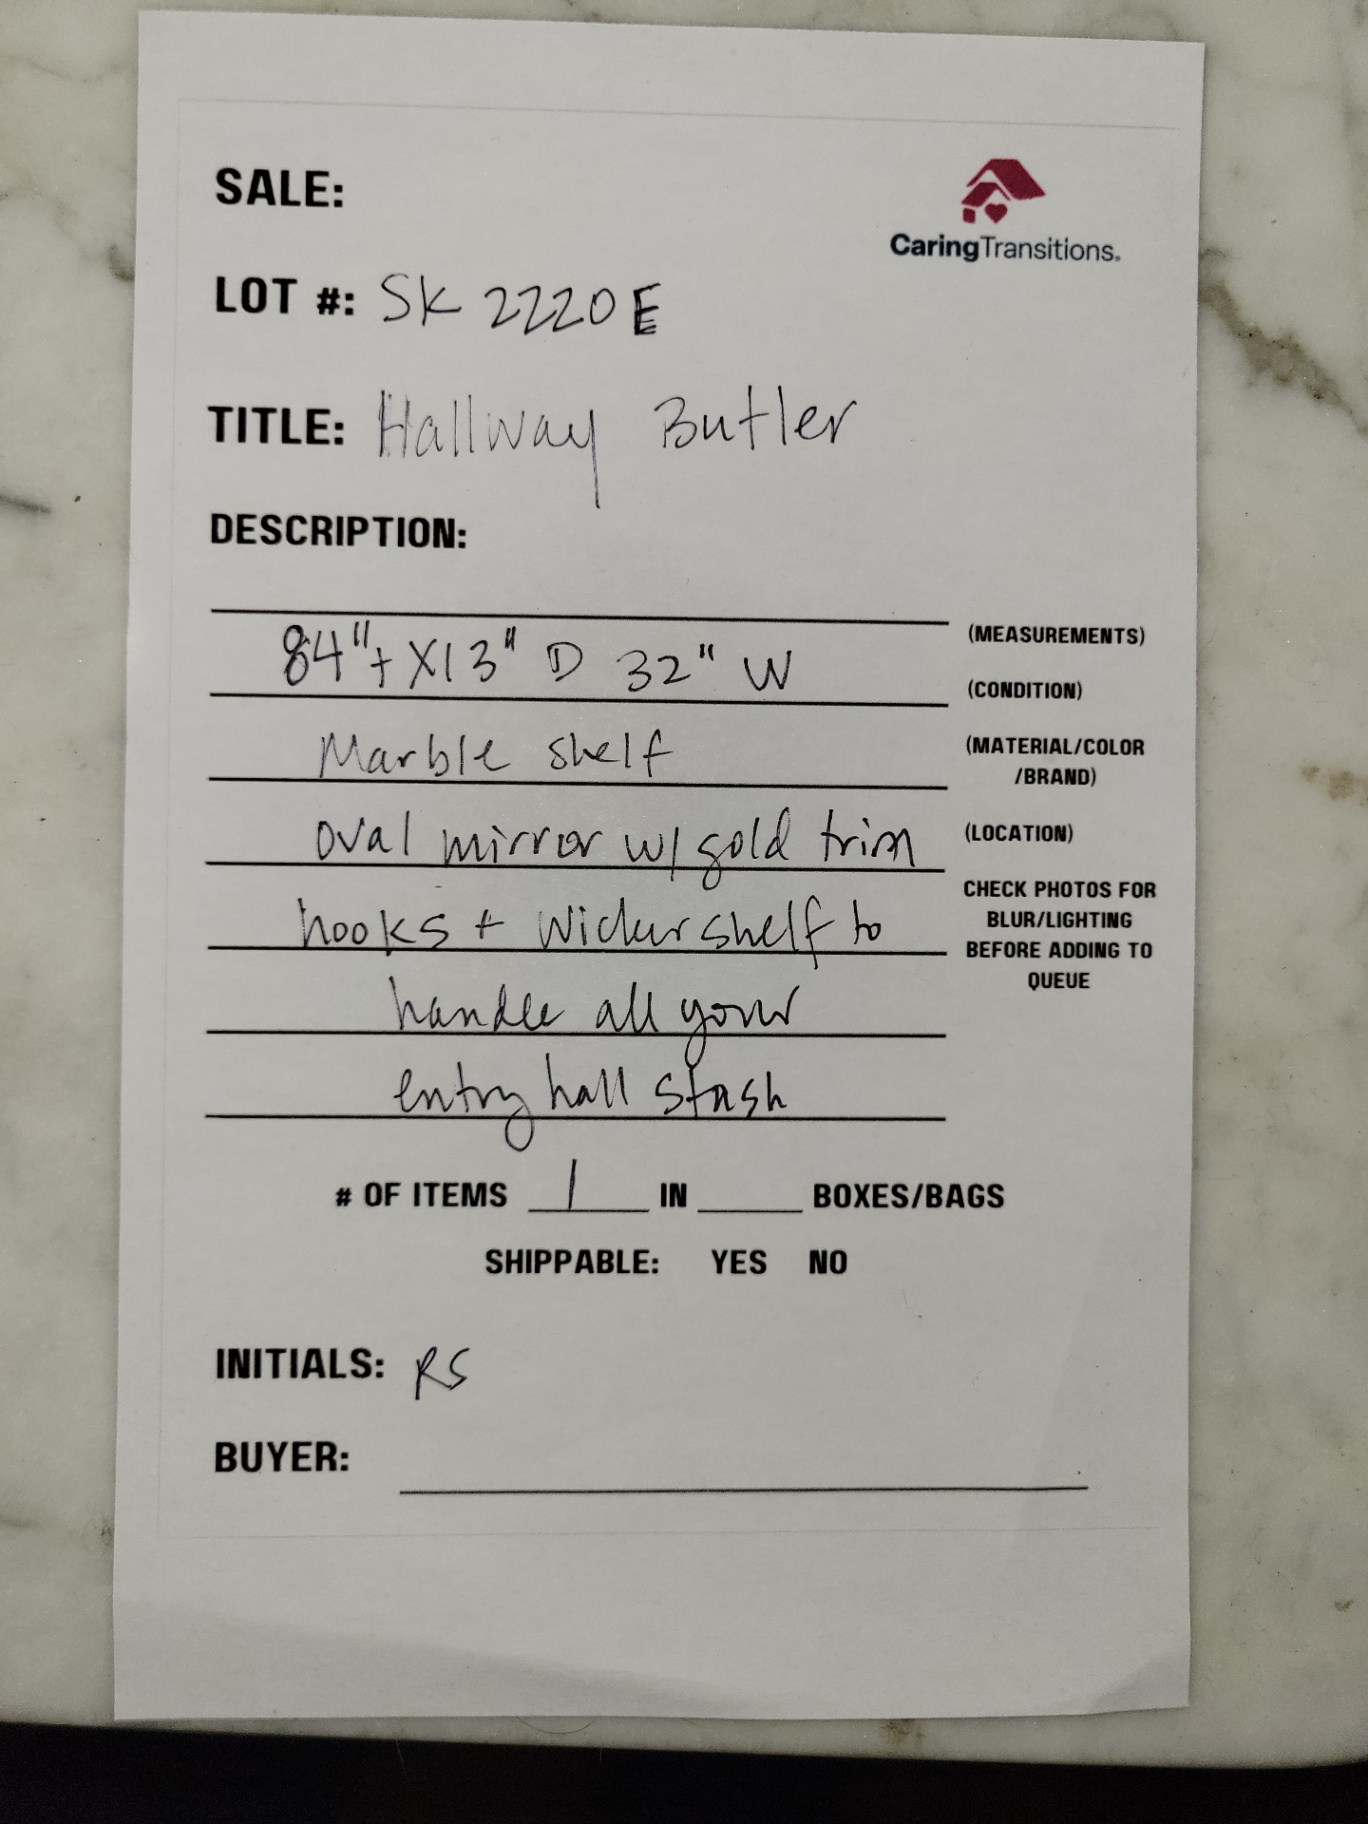 SALE:
CaringTransitions.
LOT #: SK 2220E
TITLE: Hallway Butler
DESCRIPTION:
84"+ X13" D 32" W (MEASUREMENTS)
(CONDITION)
Marble shelf (MATERIAL/COLOR
/BRAND)
oval mirror w/ gold trim (LOCATION)
hooks + wicker shelf to
handle all your
entry hall stash
CHECK PHOTOS FOR
BLUR/LIGHTING
BEFORE ADDING TO
QUEUE
# OF ITEMS 1 IN ____ BOXES/BAGS
SHIPPABLE: YES NO
INITIALS: RS
BUYER: